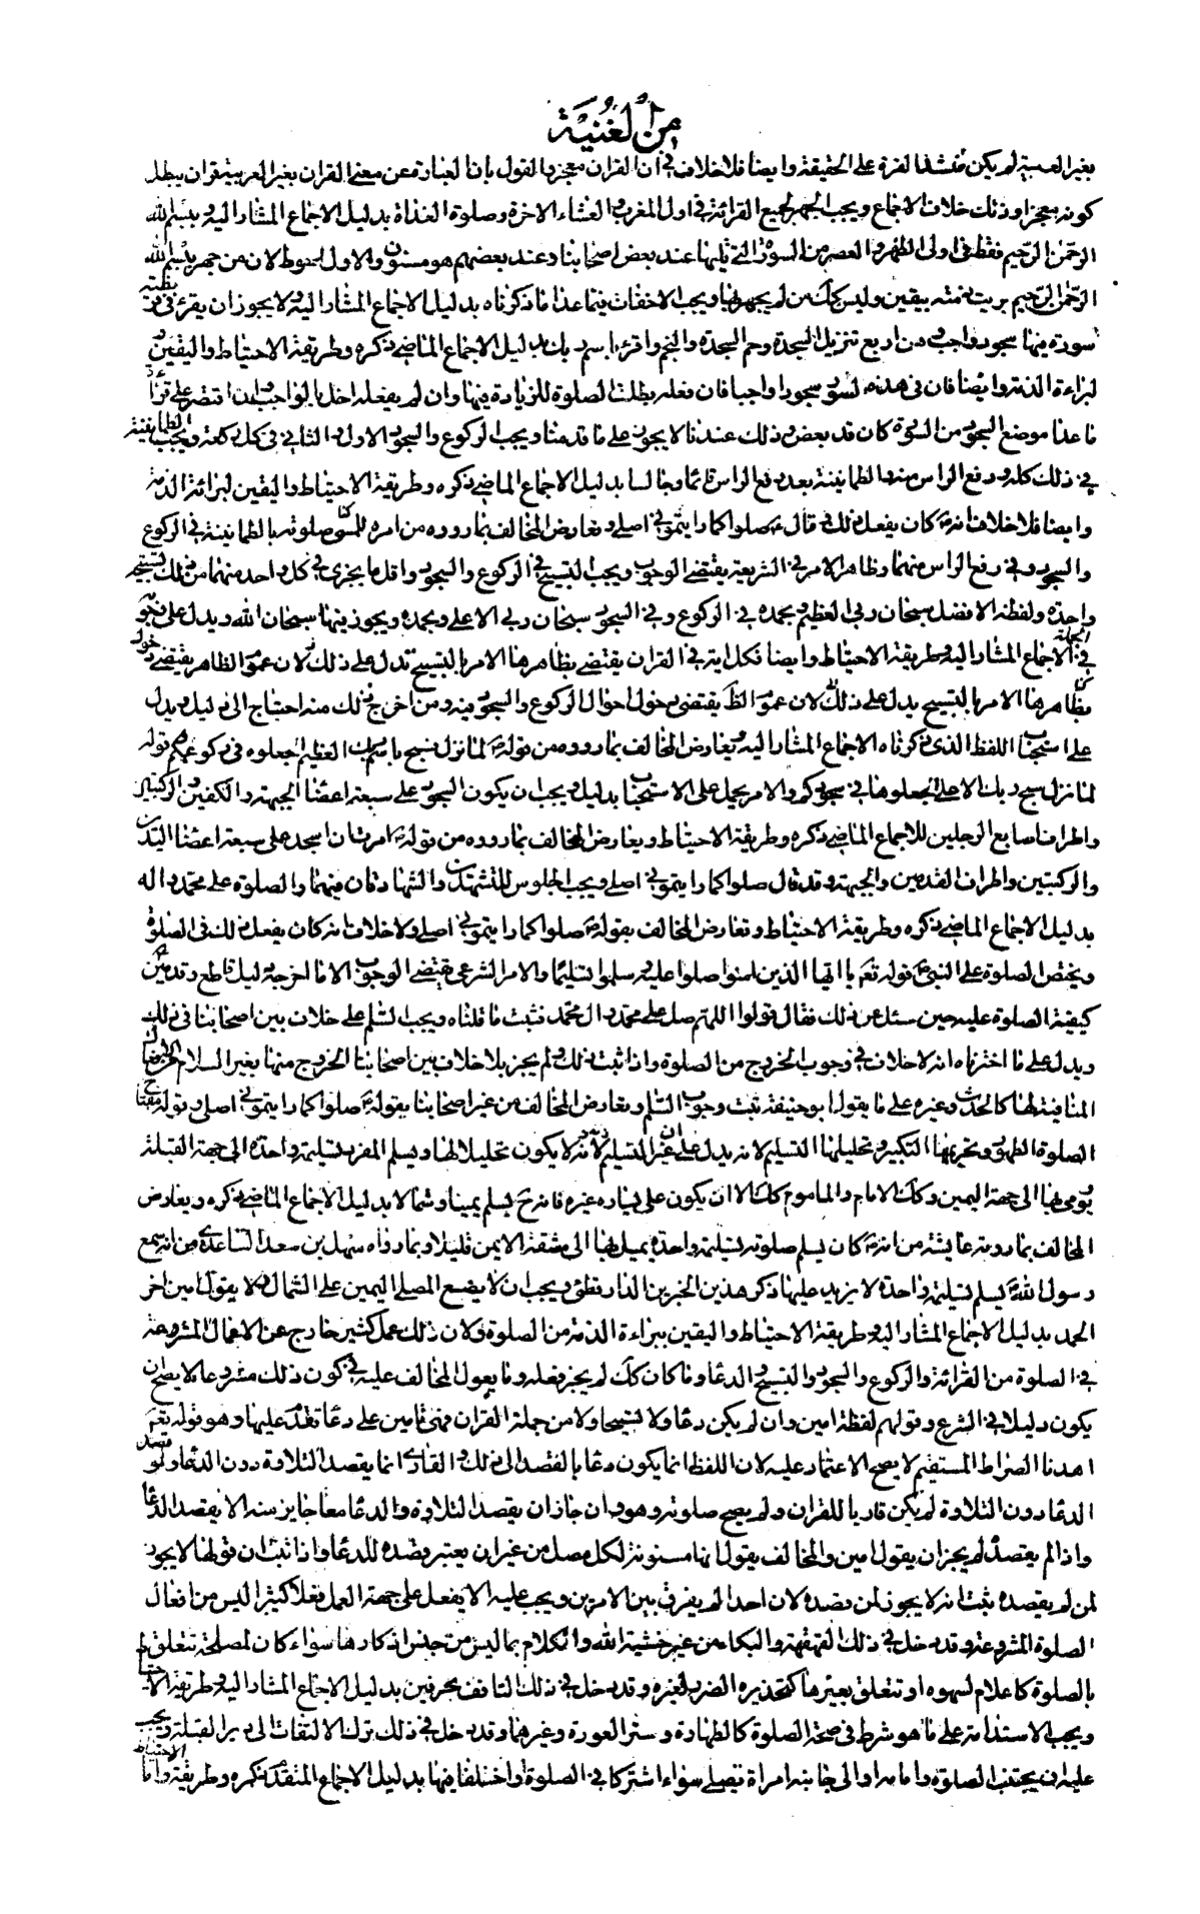 من الغنية
بغير العربية لم يكن منشدا لفرة على الحقيقة وايضا فلا خلاف في ان القران معجز والقول بان العبارة عن معنى القران بغير العربية قران يبطل
كونه معجزا وذلك خلاف الاجماع ويجب الجهر بجميع القرائة في اولى المغرب والعشاء الاخرة وصلوة الغداة بدليل الاجماع المشار اليه وببسم الله
الرحمن الرحيم فقط في اولى الظهر والعصر من السورة التي تليها عند بعض اصحابنا وعند بعضهم هو مسنون والاول احوط لان من جهر ببسم الله
الرحمن الرحيم برئت ذمته بيقين وليس كك من لم يجهر بها ويجب الاخفات فيما عدا ما ذكرناه بدليل الاجماع المشار اليه ولا يجوز ان يقرء في فريضة
سورة فيها سجود واجب وهن اربع تنزيل السجدة وحم السجدة والنجم واقرء باسم ربك بدليل الاجماع الماضي ذكره وطريقة الاحتياط واليقين
لبراءة الذمة وايضا فان في هذه السور سجودا واجبا فان فعله بطلت الصلوة للزيادة فيها وان لم يفعله اخل بالواجب فان اقتصر على قرائة
ما عدا موضع السجود من السورة كان قد بعض وذلك عندنا لا يجوز على ما قدمنا ويجب الركوع والسجود الاول والثاني في كل ركعة ويجب الطمانينة
في ذلك كله ورفع الراس منه والطمانينة بعد رفع الراس قائما وجالسا بدليل الاجماع الماضي ذكره وطريقة الاحتياط واليقين لبرائة الذمة
وايضا فلا خلاف انه كان يفعل ذلك وقال ع صلوا كما رايتموني اصلي ونعارض المخالف بما رووه من امره للمسئ صلوته بالطمانينة في الركوع
والسجود وفي رفع الراس منهما وظاهر الامر في الشريعة يقتضي الوجوب ويجب التسبيح في الركوع والسجود واقل ما يجزي في كل واحد منهما من ذلك تسبيحة
واحدة ولفظه الافضل سبحان ربي العظيم وبحمده في الركوع وفي السجود سبحان ربي الاعلى وبحمده ويجوز فيهما سبحان الله ويدل على وجوبه
في الجملة الاجماع المشار اليه وطريقة الاحتياط وايضا فكل اية في القران يقتضي بظاهرها الامر بالتسبيح تدل على ذلك لان عموم الظاهر يقتضي دخوله
بظاهرها الامر بالتسبيح يدل على ذلك لان عموم الظ يقتضي دخول احوال الركوع والسجود فيه ومن اخرج ذلك منه احتاج الى دليل ويدل
على استحباب اللفظ الذي ذكرناه الاجماع المشار اليه ويعارض المخالف بما رووه من قوله ع لما نزل فسبح باسم ربك العظيم اجعلوه في ركوعكم وقوله
لما نزل سبح اسم ربك الاعلى اجعلوها في سجودكم والامر يحمل على الاستحباب بدليل ويجب ان يكون السجود على سبعة اعضاء الجبهة والكفين والركبتين
واطراف اصابع الرجلين للاجماع الماضي ذكره وطريقة الاحتياط ويعارض المخالف بما رووه من قوله ع امرت ان اسجد على سبعة اعضاء اليدين
والركبتين واطراف القدمين والجبهة وقد قال صلوا كما رايتموني اصلي ويجب الجلوس للتشهدين والشهادتان فيهما والصلوة على محمد واله
بدليل الاجماع الماضي ذكره وطريقة الاحتياط وتعارض المخالف بقوله ع صلوا كما رايتموني اصلي ولا خلاف انه كان يفعل ذلك في الصلوة
ويختص الصلوة على النبي ع قوله تعم يا ايها الذين امنوا صلوا عليه وسلموا تسليما والامر الشرعي يقتضي الوجوب الا ما اخرجه دليل قاطع وقد بين
كيفية الصلوة عليه حين سئل عن ذلك فقال قولوا اللهم صل على محمد وال محمد فثبت ما قلناه ويجب السلم على خلاف بين اصحابنا في ذلك
ويدل على ما اخترناه انه لا خلاف في وجوب الخروج من الصلوة واذا ثبت ذلك ولم يجز بلا خلاف بين اصحابنا الخروج منها بغير السلام من الافعال
المنافية لها كالحدث وغيره على ما يقوله ابو حنيفة ثبت وجوب السلم ونعارض المخالف من غير اصحابنا بقوله ع صلوا كما رايتموني اصلي وقوله مفتاح
الصلوة الطهور وتحريمها التكبير وتحليلها التسليم لانه يدل على ان غير التسليم لا يكون تحليلا لها ويسلم المنفرد تسليمة واحدة الى جهة القبلة
يومي بها الى جهة اليمين وكك الامام والماموم كك الا ان يكون على يساره غيره فانه ح يسلم يمينا وشمالا بدليل الاجماع الماضي ذكره ويعارض
المخالف بما روته عايشة من انه ع كان يسلم في صلوته تسليمة واحدة يميل بها الى شقه الايمن قليلا وبما رواه سهل بن سعد الساعدي من انه سمع
رسول الله ص يسلم تسليمة واحدة لا يزيد عليها ذكر هذين الخبرين الدارقطني ويجب ان لا يضع المصلي اليمين على الشمال ولا يقول امين اخر
الحمد بدليل الاجماع المشار اليه وطريقة الاحتياط واليقين ببراءة الذمة من الصلوة ولان ذلك عمل كثير خارج عن الاعمال المشروعة
في الصلوة من القرائة والركوع والسجود والتسبيح والدعاء وما كان كك لم يجز فعله وما يعول المخالف عليه في كون ذلك مشروعا لا يصح ان
يكون دليلا في الشرع وقولهم لفظة امين وان لم يكن دعاء ولا تسبيحا ولا من جملة القران فهي تامين على دعاء تقدم عليها وهو قوله تعم
اهدنا الصراط المستقيم لا يصح الاعتماد عليه لان اللفظ انما يكون دعاء بالقصد الى ذلك والقاري انما يقصد التلاوة دون الدعاء ولو قصد
الدعاء دون التلاوة لم يكن قاريا للقران ولم يصح صلوته وهو وان جاز ان يقصد التلاوة والدعاء معا جايز منه الا يقصد الدعاء
واذا لم يقصده لم يجز ان يقول امين والمخالف يقول انها مسنونة لكل مصل من غير ان يعتبر قصده للدعاء واذا ثبت ان قولها لا يجوز
لمن لم يقصده ثبت انه لا يجوز لمن قصده لان احدا لم يفرق بين الامرين ويجب عليه الا يفعل على جهة العمل فعلا كثيرا ليس من افعال
الصلوة المشروعة وقد دخل في ذلك القهقهة والبكاء من غير خشية الله والكلام بما ليس من جنس اذكارها سواء كان لمصلحة تتعلق
بالصلوة كاعلام لسهوه او تتعلق بغيرها كتحذيره الضرر لغيره وقد دخل في ذلك التافف بحرفين بدليل الاجماع المشار اليه وطريقة الاحتياط
ويجب الاستدامة على ما هو شرط في صحة الصلوة كالطهارة وستر العورة وغيرهما وقد دخل في ذلك ترك الالتفات الى دبر القبلة ويجب
عليه ان يجتنب الصلوة وامامه او الى جانبه امراة تصلي سواء اشتركا في الصلوة او اختلفا فيها بدليل الاجماع المتقدم ذكره وطريقة الاحتياط واما